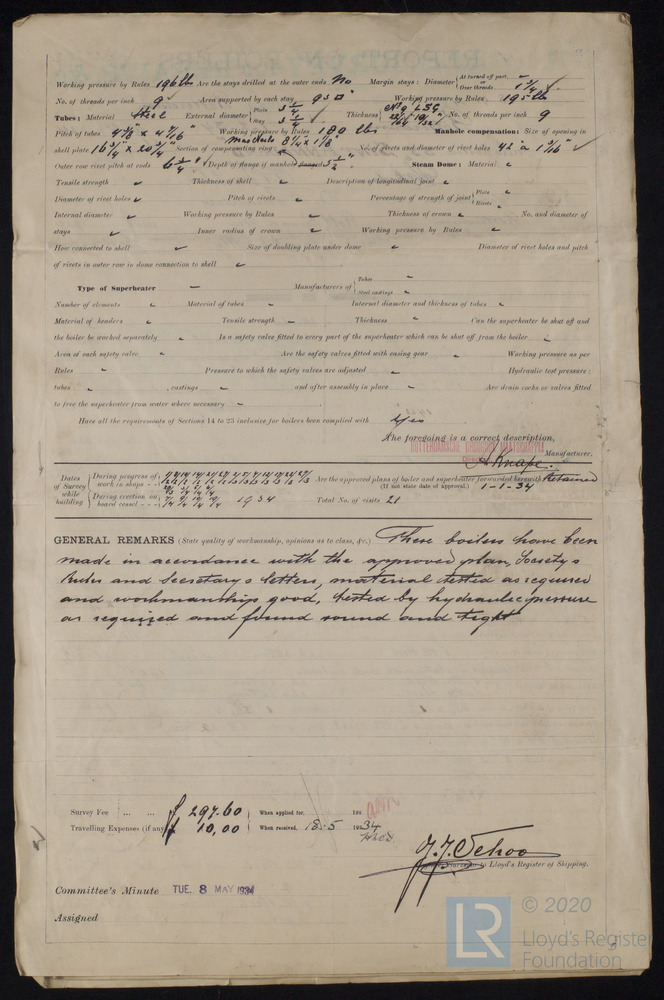 Working pressure by Rules 196 lb Are the stays drilled at the outer ends No Margin stays: Diameter { At turned off part, or Over threads 1 3/4"
No. of threads per inch 9 Area supported by each stay 93 □" Working pressure by Rules 195 lb
Tubes: Material Steel External diameter { Plain 3 1/4 Stay 3 1/4" Thickness No. of threads per inch 9
Pitch of tubes 4 7/8" x 4 7/16" Working pressure by Rules 180 lbs Manhole compensation: Size of opening in
shell plate 16 3/4" x 20 3/4" Section of compensating ring 8 1/4" x 1 1/8" No. of rivets and diameter of rivet holes 42 à 1 3/16"
Outer row rivet pitch at ends 6 1/4" Depth of flange if manhole flanged 3 1/2" Steam Dome: Material
Tensile strength Thickness of shell Description of longitudinal joint
Diameter of rivet holes Pitch of rivets Percentage of strength of joint { Plate Rivets
Internal diameter Working pressure by Rules Thickness of crown No. and diameter of
stays Inner radius of crown Working pressure by Rules
How connected to shell Size of doubling plate under dome Diameter of rivet holes and pitch
of rivets in outer row in dome connection to shell
Type of Superheater — Manufacturers of { Tubes Steel castings
Number of elements Material of tubes Internal diameter and thickness of tubes
Material of headers Tensile strength Thickness Can the superheater be shut off and
the boiler be worked separately Is a safety valve fitted to every part of the superheater which can be shut off from the boiler
Area of each safety valve Are the safety valves fitted with easing gear Working pressure as per
Rules Pressure to which the safety valves are adjusted Hydraulic test pressure:
tubes , castings and after assembly in place Are drain cocks or valves fitted
to free the superheater from water where necessary
Have all the requirements of Sections 14 to 23 inclusive for boilers been complied with Yes
The foregoing is a correct description,
ROTTERDAMSCHE DROOGDOK MAATSCHAPPIJ
A. Knape. Manufacturer.
Dates of Survey while building { During progress of work in shops - - During erection on board vessel - - - 1934
Are the approved plans of boiler and superheater forwarded herewith Retained
(If not state date of approval.) 1-1-34
Total No. of visits 21
GENERAL REMARKS (State quality of workmanship, opinions as to class, &c.) These boilers have been
made in accordance with the approved plan, Society's
Rules and Secretary's letters, material tested as required
and workmanship good, tested by hydraulic pressure
as required and found sound and tight
Survey Fee ... ... f 297.60 When applied for, 193
Travelling Expenses (if any) f 10,00 When received, 18.5 1934
J. J. Schoo
Surveyor to Lloyd's Register of Shipping.
Committee's Minute TUE. 8 MAY 1934
Assigned
LR © 2020
Lloyd's Register
Foundation